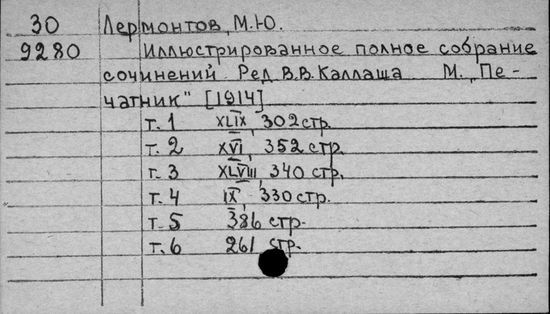 30 Лермонтов, М.Ю.
9280 Иллюстрированное полное собрание
сочинений. Ред. В.В. Каллаша М. "Пе-
чатник" [1914]
т. 1 XLIX, 302 стр.
т. 2 XVI, 352 стр.
т. 3 XLVIII, 340 стр.
т. 4 IX, 330 стр.
т. 5 386 стр.
т. 6 261 стр.